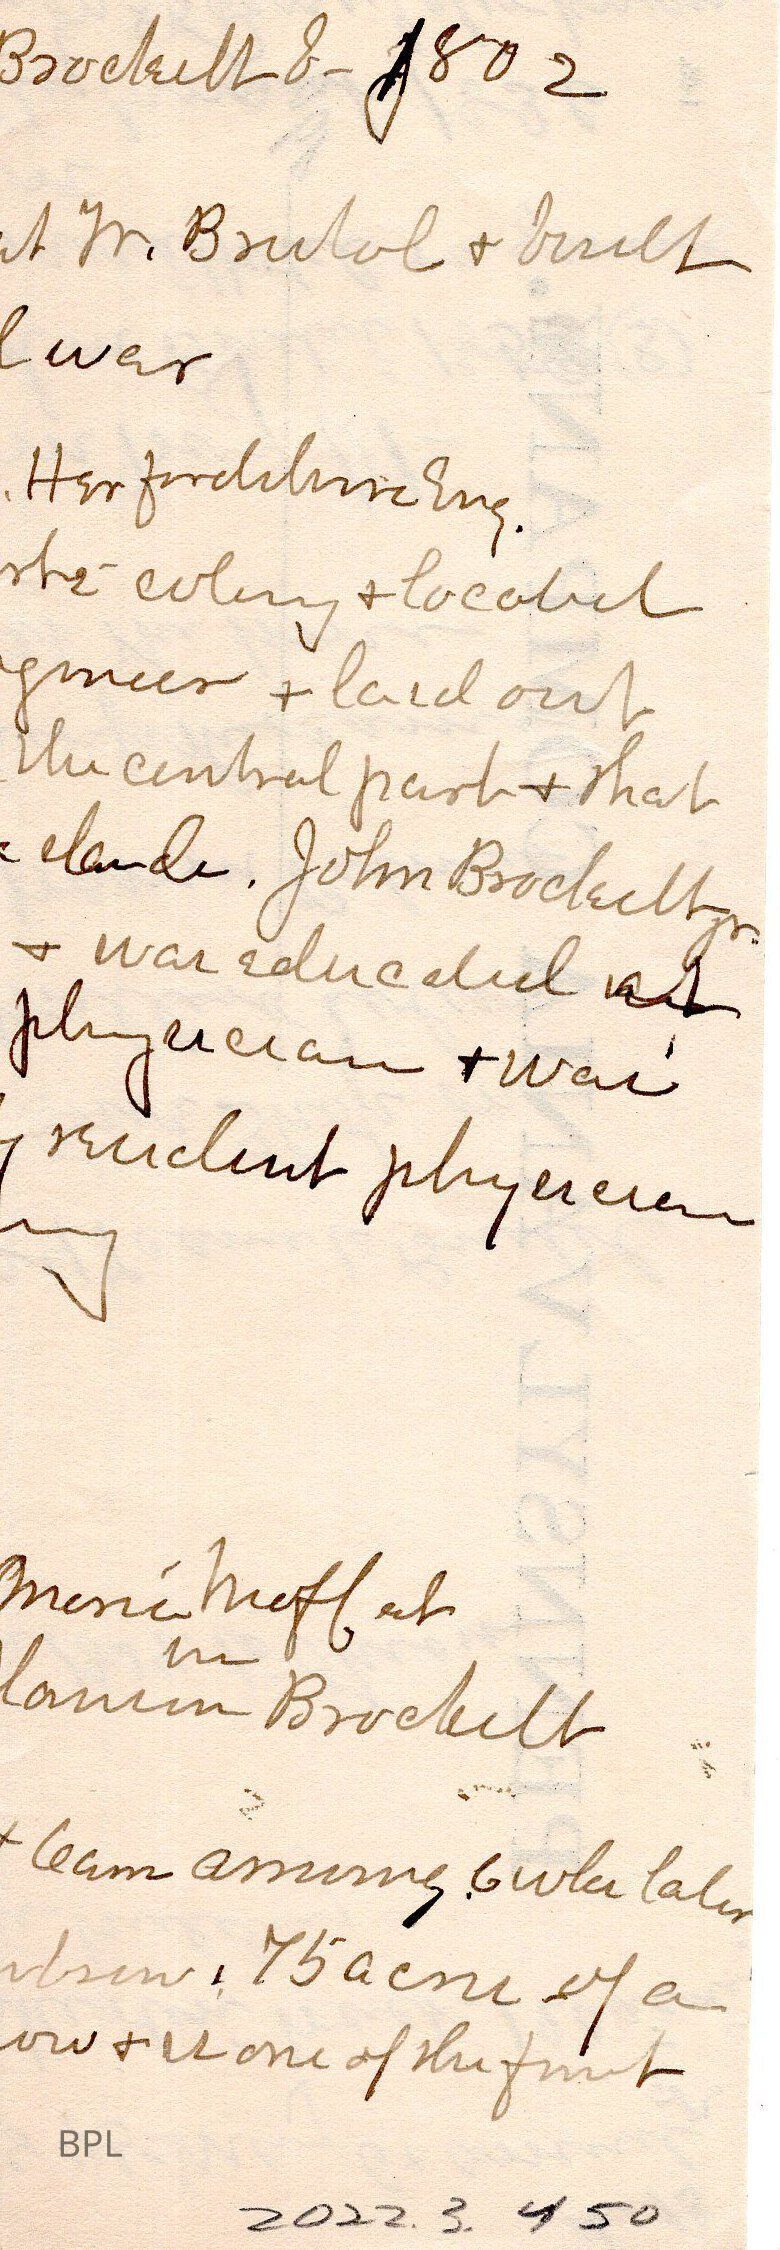 Brockett 8- 1802
at W. Bristol + built
l war
. Herfordshire Eng.
colony + located
gineer + laid out
the central part + that
elands. John Brockett jr.
+ was educated at
physician + was
y resident physician
ny
Maria Moffat
in
Brockett
+ team among 6 who later
75 acres of a
ow + is one of the first
BPL
2022.3.450
PENNSYLVANIA